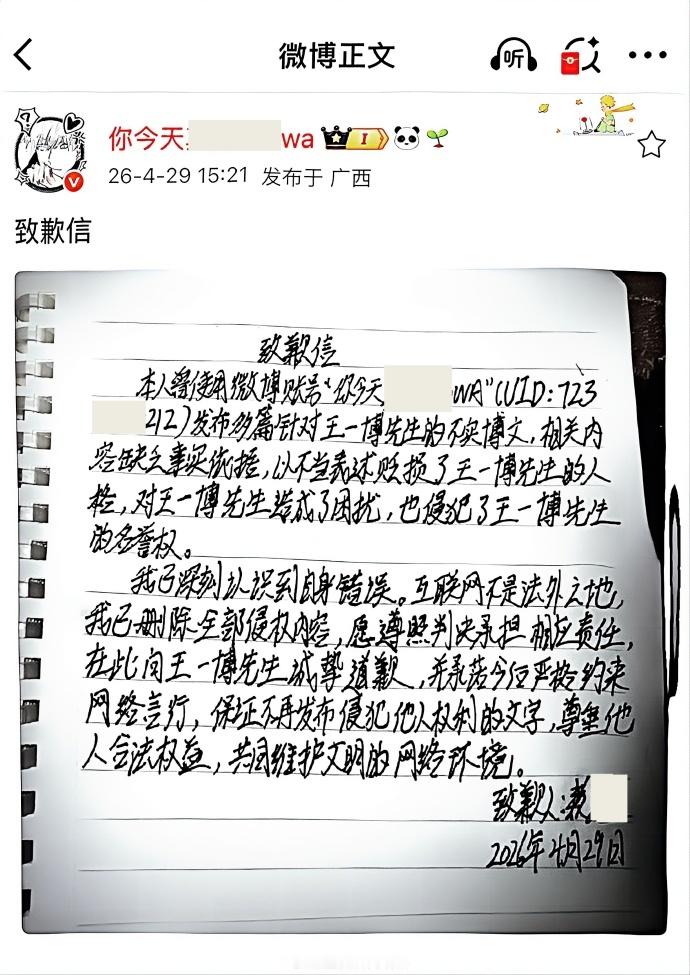 微博正文
听
你今天 wa I
26-4-29 15:21 发布于 广西
致歉信
致歉信
本人曾使用微博账号“你今天 WA”(UID:723
212)发布多篇针对王一博先生的不实博文,相关内
容缺乏事实依据,以不当表述贬损了王一博先生的人
格,对王一博先生造成了困扰,也侵犯了王一博先生
的名誉权。
我已深刻认识到自身错误。互联网不是法外之地,
我已删除全部侵权内容,愿遵照判决承担相应责任,
在此向王一博先生诚挚道歉,并承诺今后严格约束
网络言行,保证不再发布侵犯他人权利的文字,尊重他
人合法权益,共同维护文明的网络环境。
致歉人:
2026年4月29日